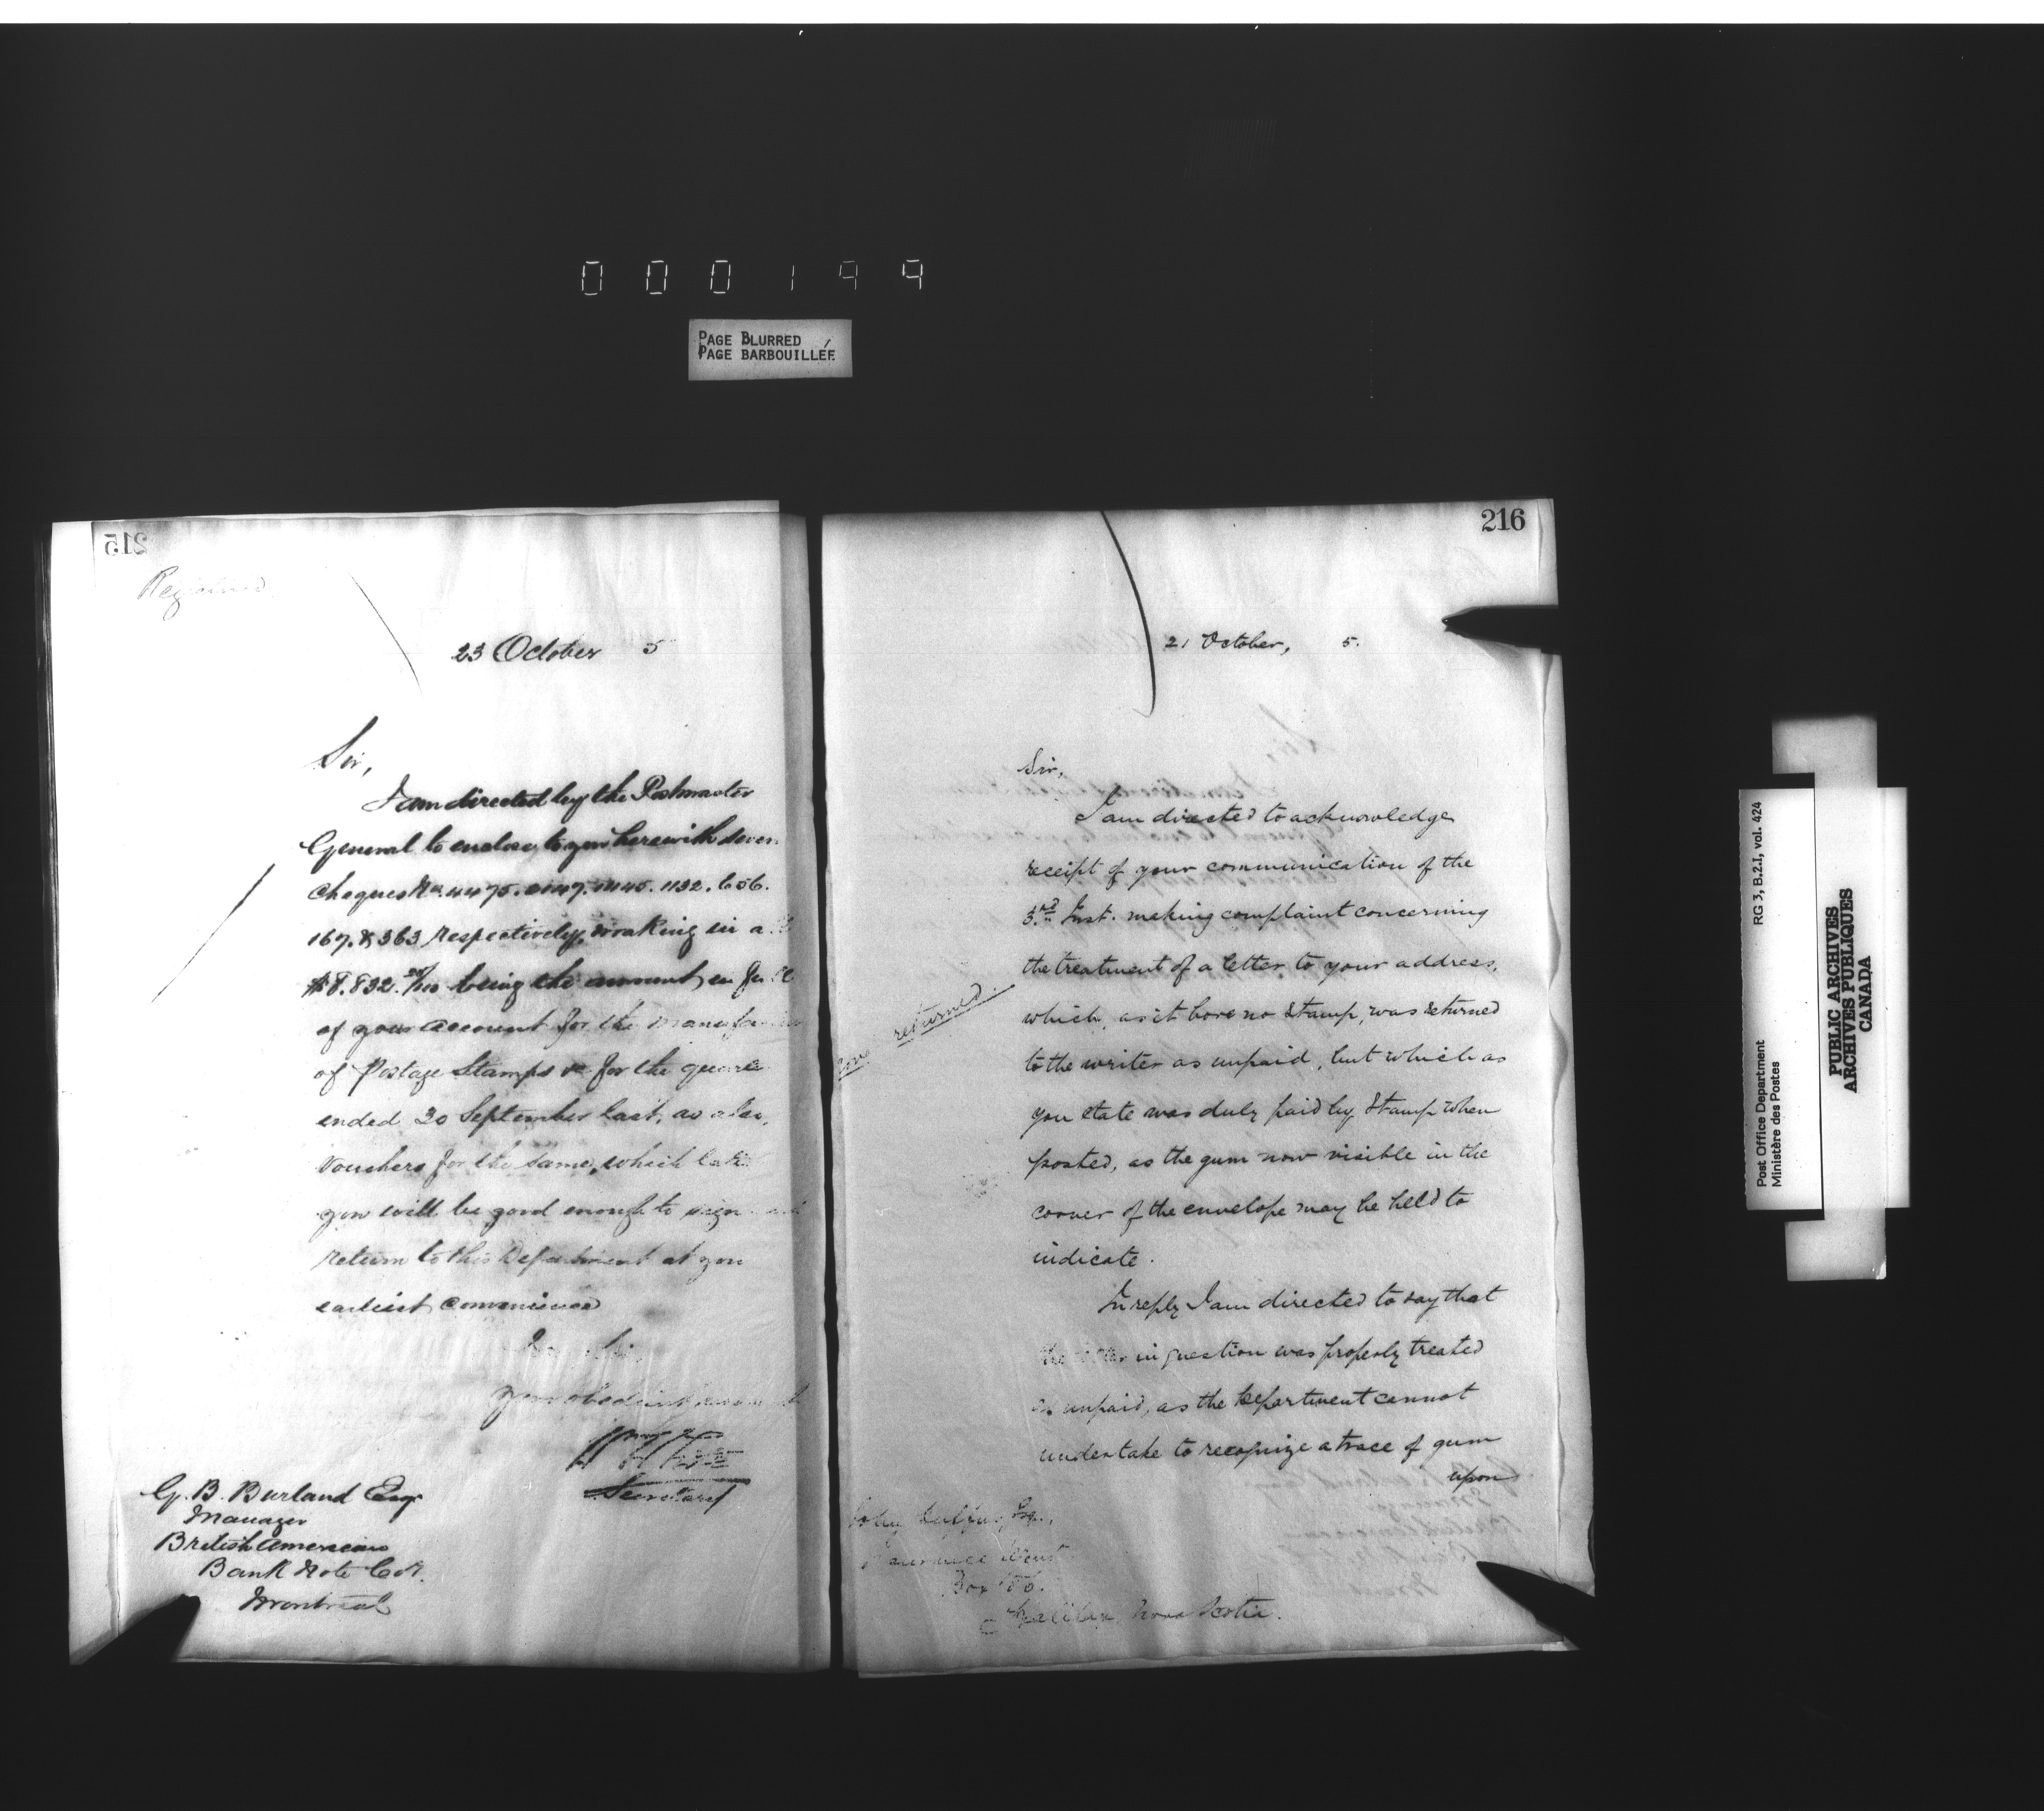 000199
PAGE BLURRED
PAGE BARBOUILLÉE
215
23 October 5
Sir,
I am directed by the Postmaster
General to enclose to you herewith seven
Cheques Nos. 4475. 1132. 656.
167. & 363 respectively, making in a
$8.832. 20/100 being the amount in full
of your account for the manufac
of Postage Stamps &c for the quarte
ended 30 September last, as also,
Vouchers for the same, which latt
you will be good enough to sign and
return to this Department at you
earliest convenience
I am, Sir,
Your obedient servant
Secretary
G. B. Burland Esqr
Manager
British American
Bank Note Co.
Montreal
216
21 October, 5.
Sir,
I am directed to acknowledge
receipt of your communication of the
3rd Inst. making complaint concerning
the treatment of a letter to your address,
which, as it bore no stamp, was returned
to the writer as unpaid, but which as
you state was duly paid by stamp when
posted, as the gum now visible in the
corner of the envelope may be held to
indicate.
In reply I am directed to say that
the letter in question was properly treated
as unpaid, as the Department cannot
undertake to recognize a trace of gum
upon
returned.
John Esq.,
Box
Halifax, Nova Scotia.
RG 3, B.2.1, vol. 424
Post Office Department
Ministère des Postes
PUBLIC ARCHIVES
ARCHIVES PUBLIQUES
CANADA